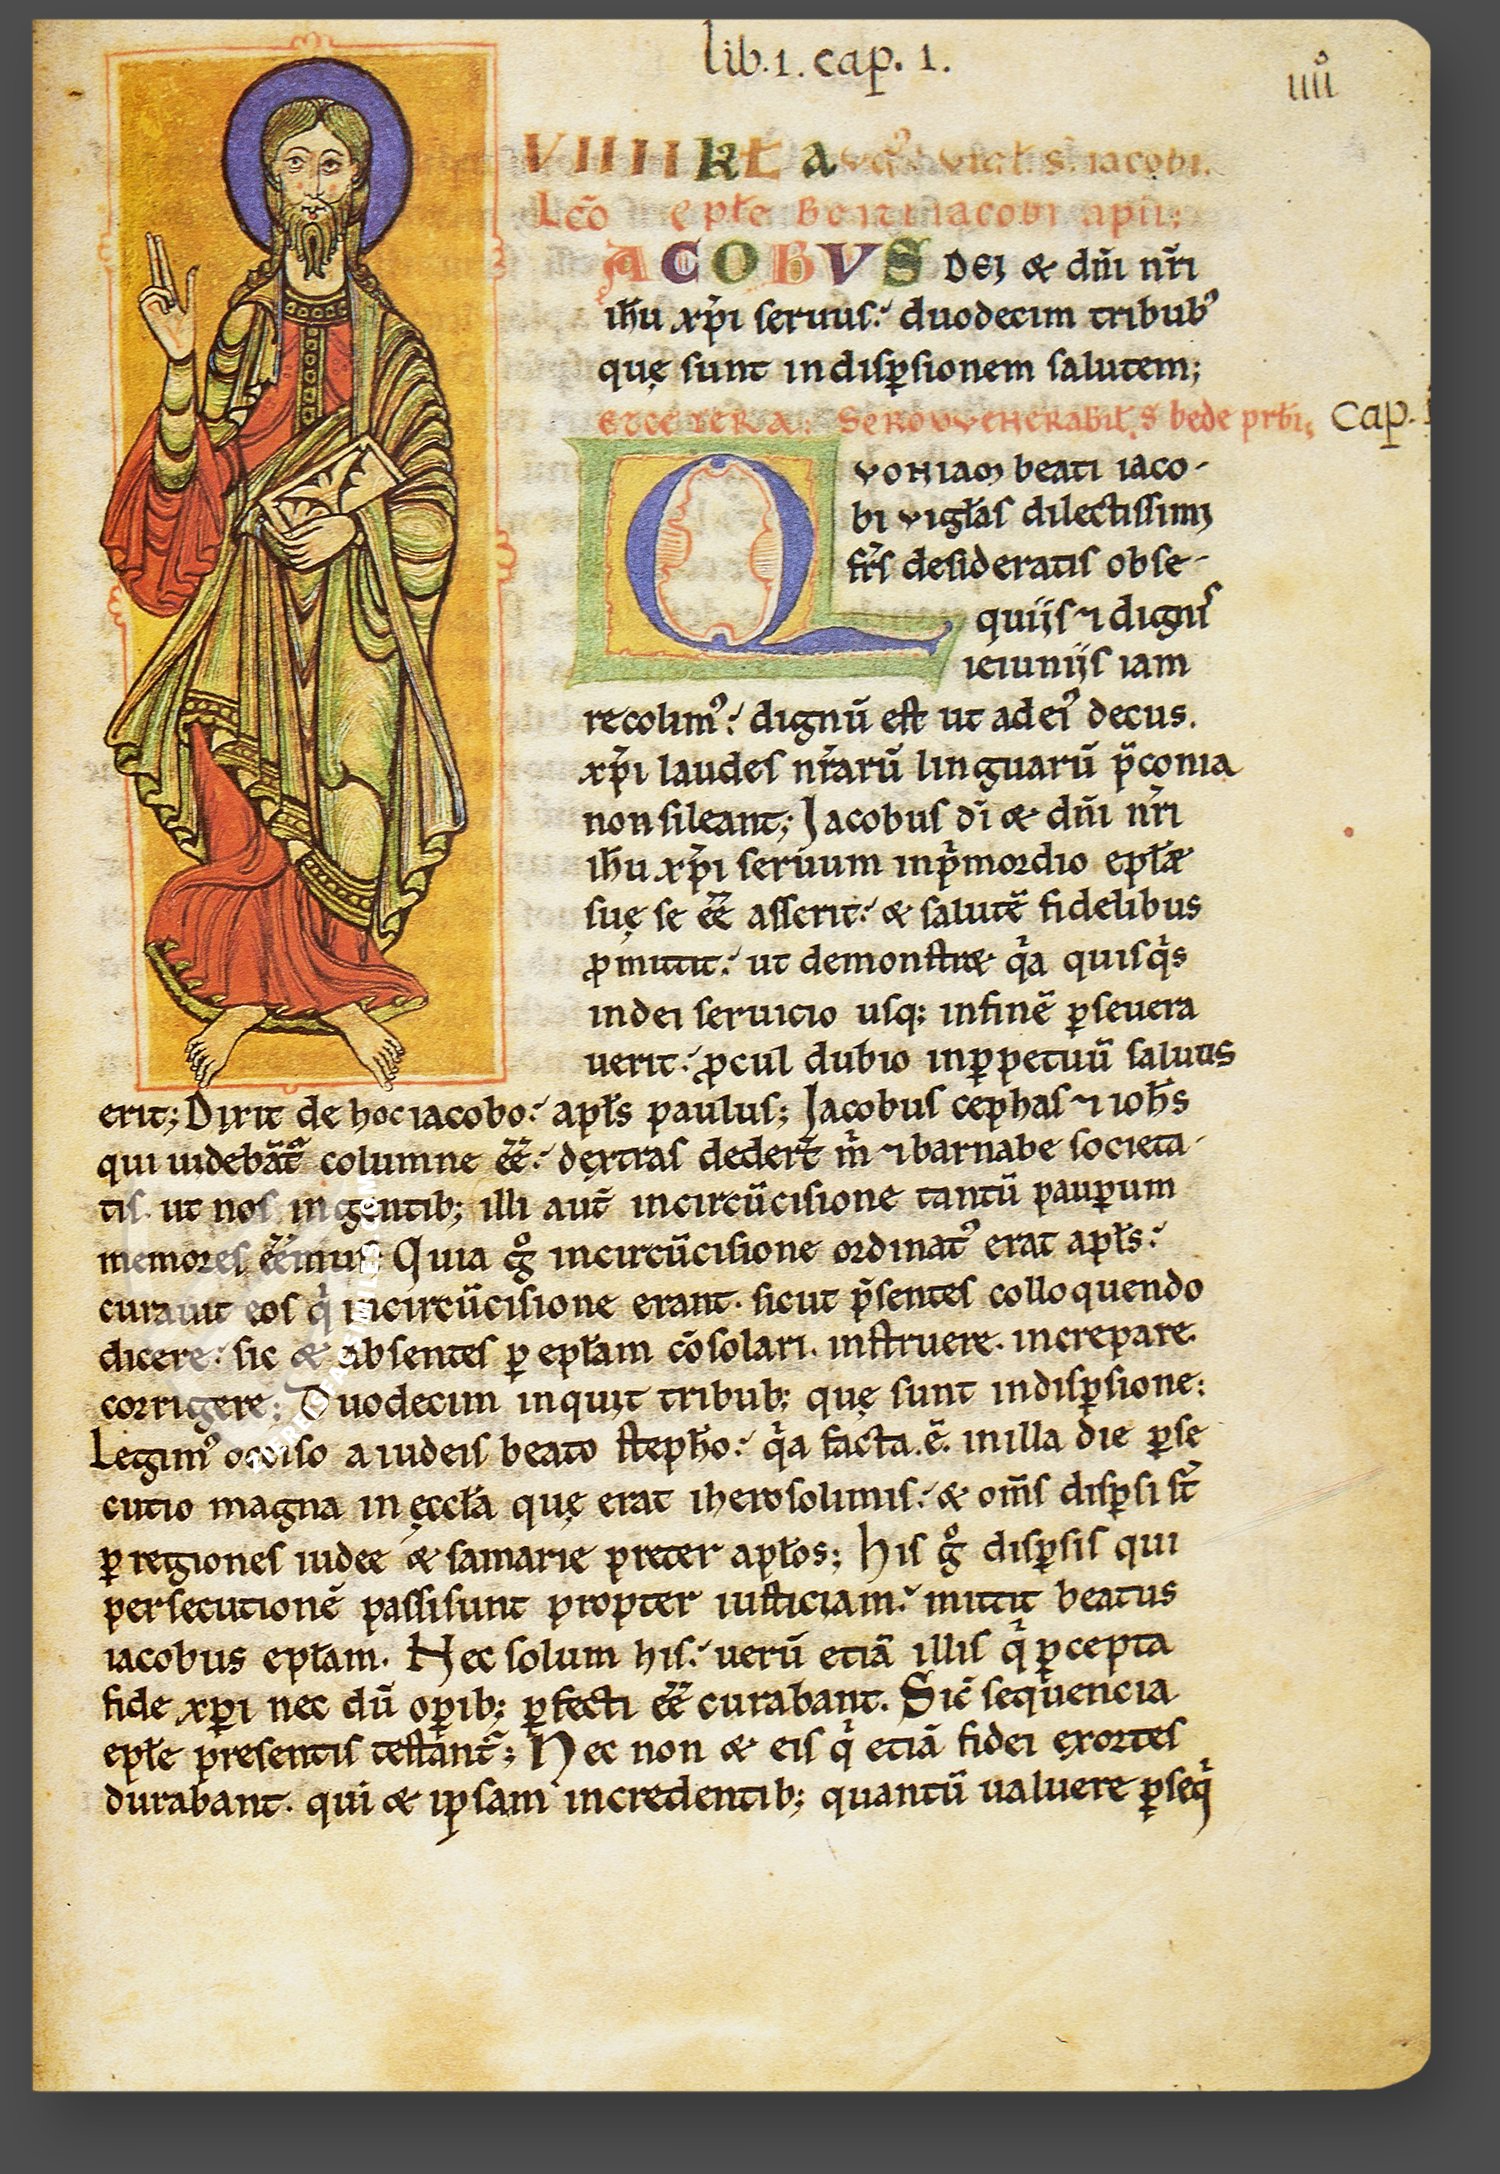 lib. 1. cap. 1.
iiiiº
VIIII kł aug᷒. vigł. s. iacobi.
Lc̃o epłe Beati iacobi apłi;
IACOBVS DEI & dñi nr̃i
ih̃u xp̃i seruus: duodecim tribub᷒
quę sunt indisꝑsionem salutem;
ET CETERA. SERMO VENERABIŁ. S. bede prb̃i;
Cap.
QVONIAM beati iaco-
bi vigłas dilectissimi
fr̃s desideratis obse-
quiis ⁊ dignis
ieiuniis iam
recolim᷒: dignũ est ut ad ei᷒ decus.
xp̃i laudes nr̃arũ linguarũ p̃conia
non sileant; Jacobus dı̃ & dñi nr̃i
ih̃u xp̃i seruum inpͥmordio epłæ
suę se ẽẽ asserit: & salutẽ fidelibus
ꝓmittit: ut demonstret qͥa quisqͥs
indei seruicio usq; infinẽ ꝑseuera
uerit: ꝓcul dubio inꝑpetuũ saluus
erit; Dixit de hoc iacobo: apłs paulus; Jacobus cephas ⁊ ioħs
qui uidebãt᷑ columne ẽẽ: dextras dedert̃ m̃ ⁊ barnabe societa-
tis. ut nos in gentib; illi aut̃ incircũcisione tantũ pauꝑum
memores ẽẽmus. Quia gͦ incircũcisione ordinat᷒ erat apłs:
curauit eos qͥ incircũcisione erant. sicut p̃sentes colloquendo
dicere: sic & absentes ꝑ epłam cõsolari. instruere. increpare.
corrigere; Duodecim inquit tribub; quę sunt indisꝑsione:
Legim᷒ occiso a iudeis beato stepħo: qͥa facta .ẽ. in illa die ꝑse
cutio magna in ęccła quę erat iherosolimis: & om̃s disꝑsi st̃
ꝑ regiones iudee & samarie preter apłos; His gͦ disꝑsis qui
persecutionẽ passi sunt propter iusticiam: mittit beatus
iacobus epłam. Nec solum his: uerũ etiã illis qͥ ꝑcepta
fide xp̃i nec dũ oꝑib; ꝑfecti ẽẽ curabant. Sic̃ sequencia
epłe presentis testant᷑; Nec non & eis qͥ etiã fidei exortes
durabant. qui & ipsam in credentib; quantũ ualuere ꝑseqͥ